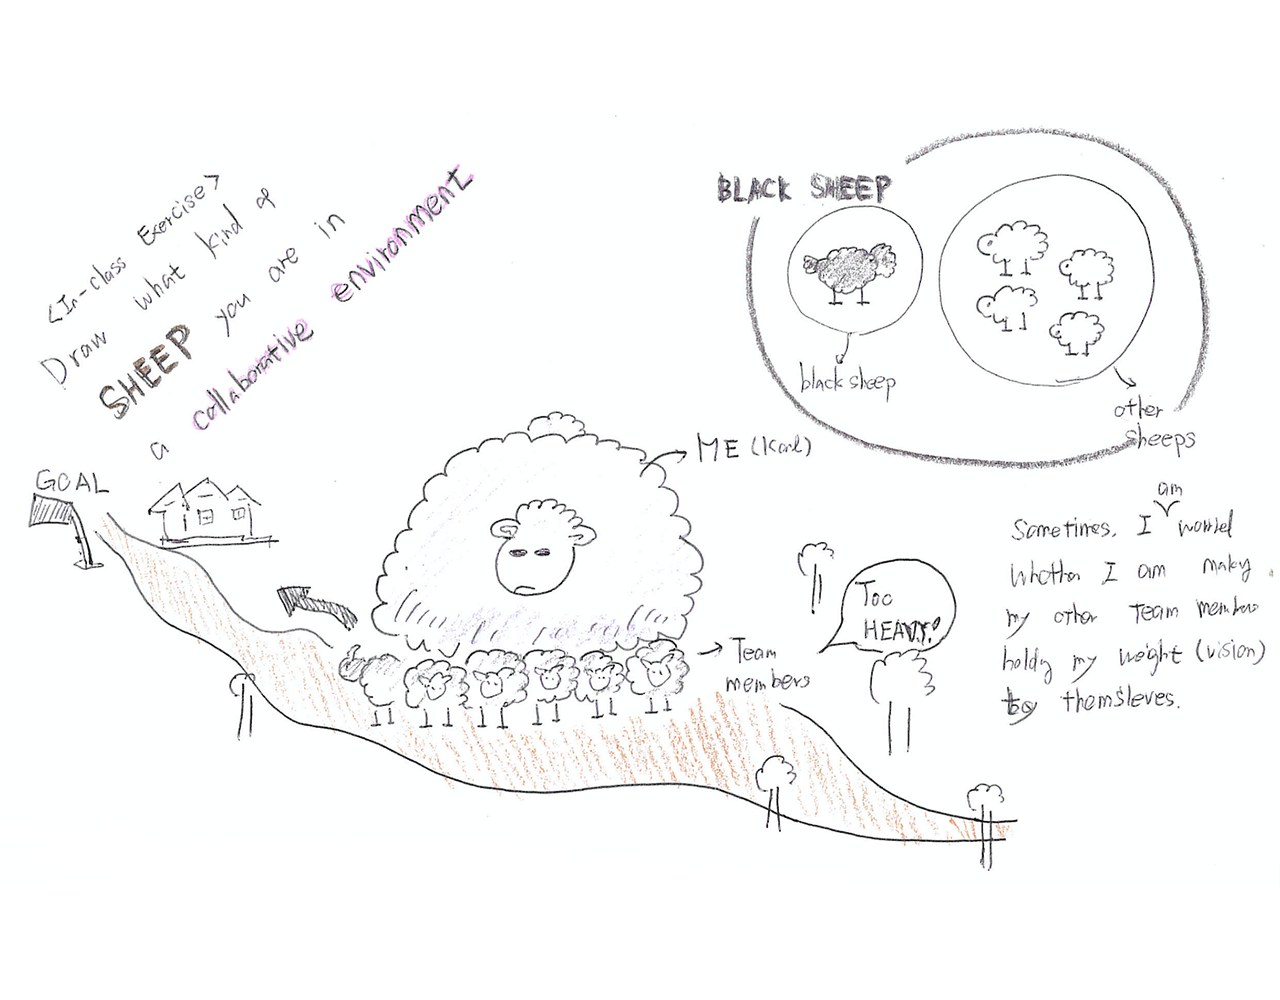 <In-class Exercise>
Draw what kind of
SHEEP you are in
a collaborative environment
BLACK SHEEP
black sheep
other
sheeps
GOAL
ME (Karl)
Team
members
Too
HEAVY!
am
Sometimes, I worried
Whether I am making
my other Team members
holdy my weight (vision)
by themsleves.